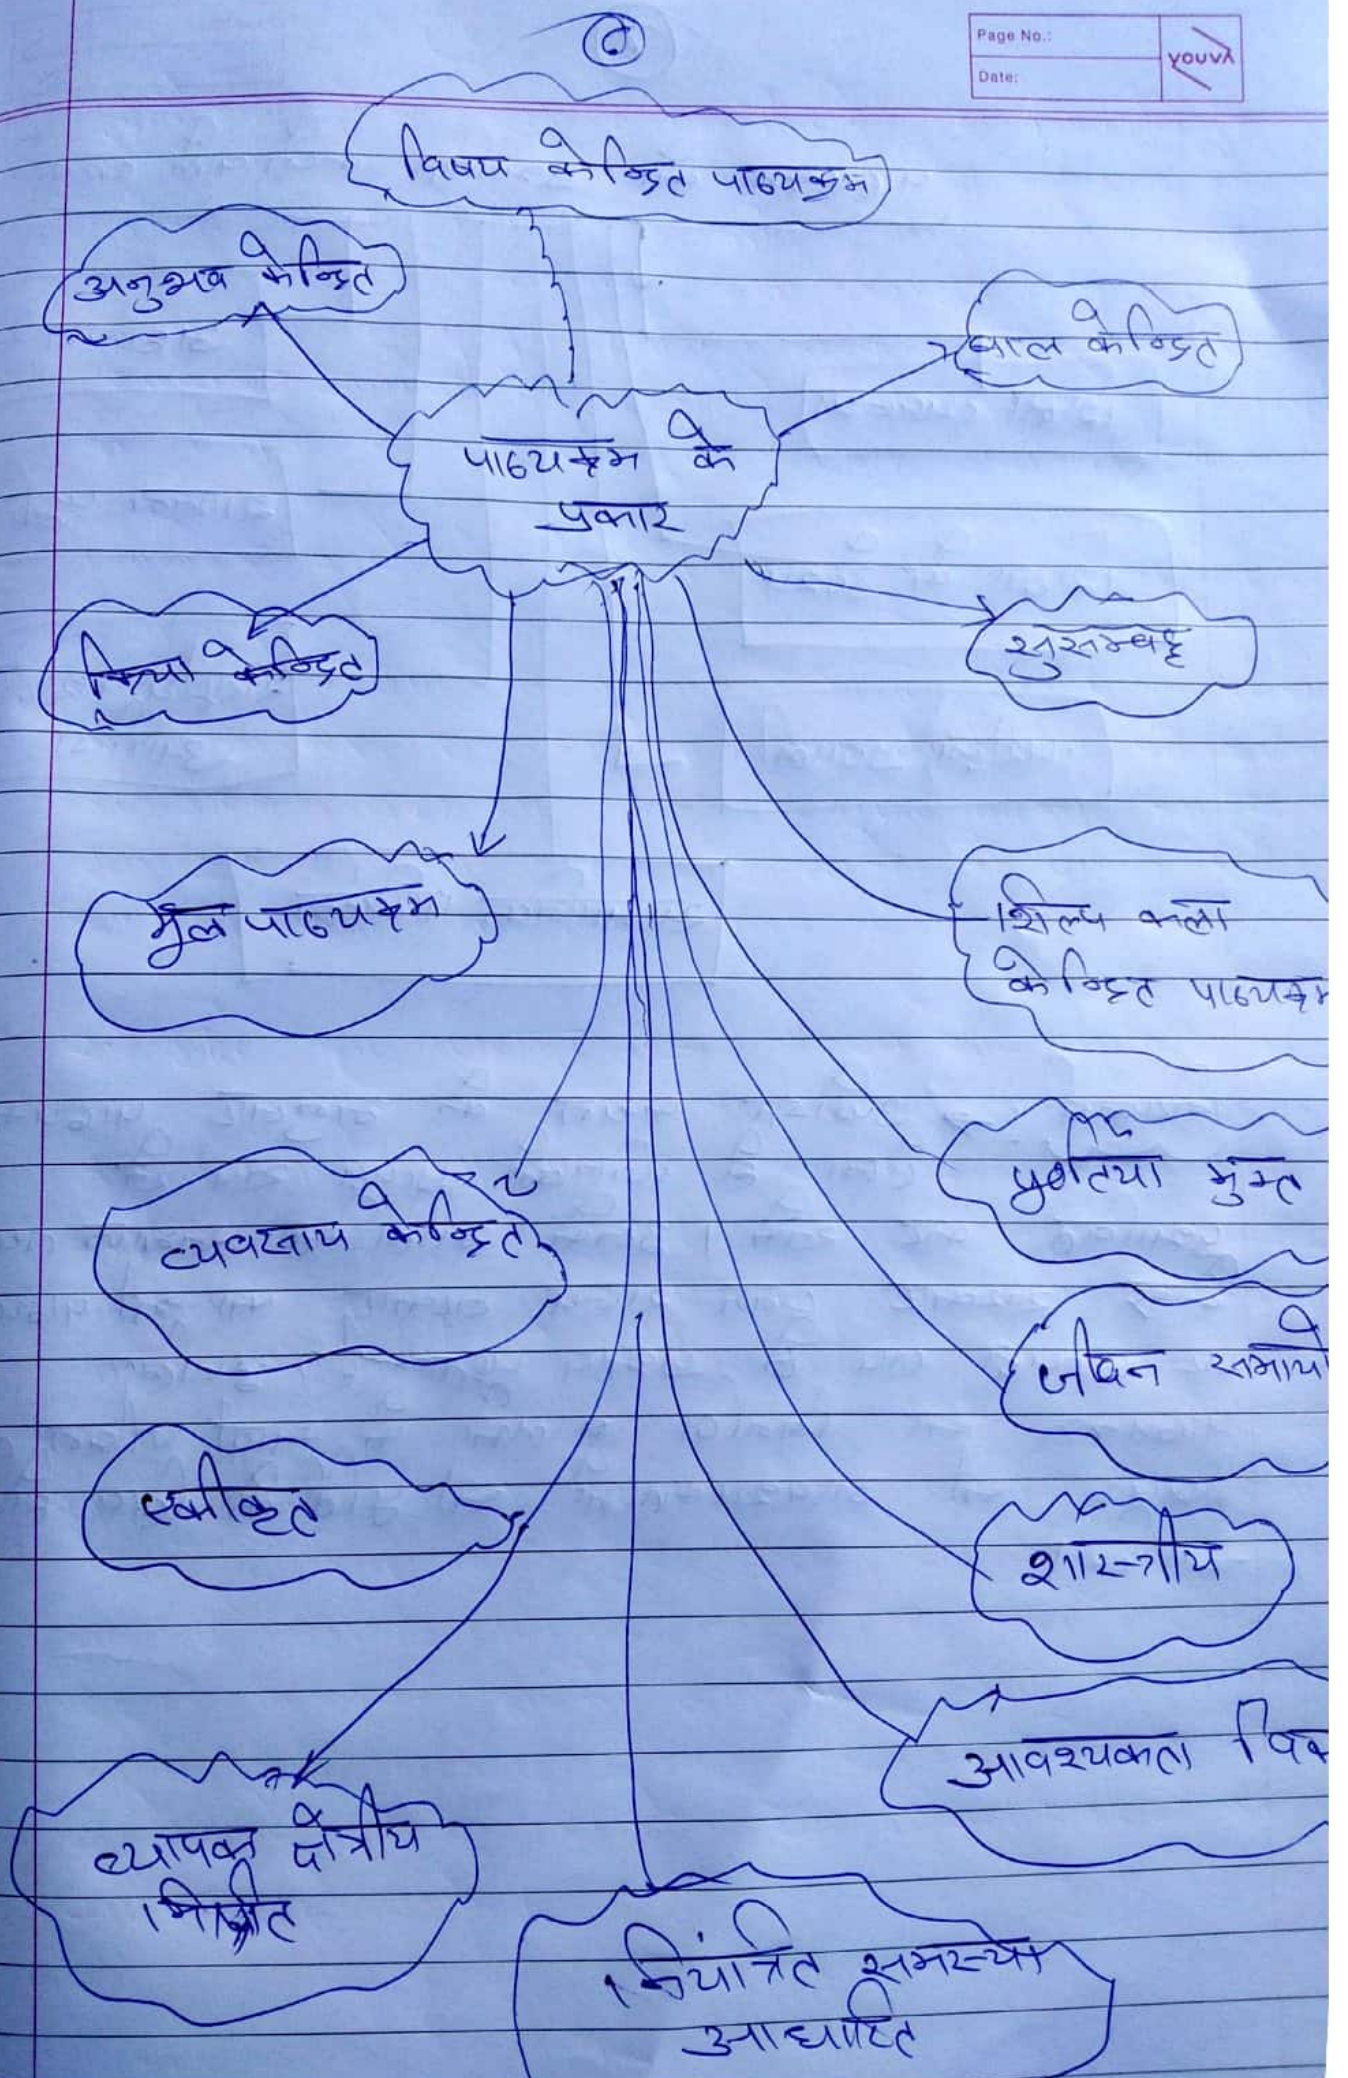 Page No.:
Date:
YOUVA
विषय केन्द्रित पाठ्यक्रम
अनुभव केन्द्रित
बाल केन्द्रित
पाठ्यक्रम के
प्रकार
क्रिया केन्द्रित
सुसम्बद्ध
मूल पाठ्यक्रम
शिल्प कला
केन्द्रित पाठ्यक्रम
व्यवसाय केन्द्रित
जीवन समायो
एकीकृत
शास्त्रीय
आवश्यकता
व्यापक क्षेत्रीय
मिश्रित
नियंत्रित समस्या
आधारित